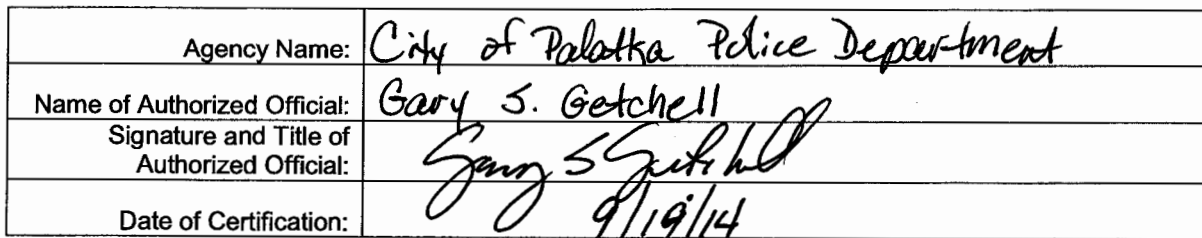 Agency Name: City of Palatka Police Department
Name of Authorized Official: Gary S. Getchell
Signature and Title of
Authorized Official: Gary S Getchell
Date of Certification: 9/19/14